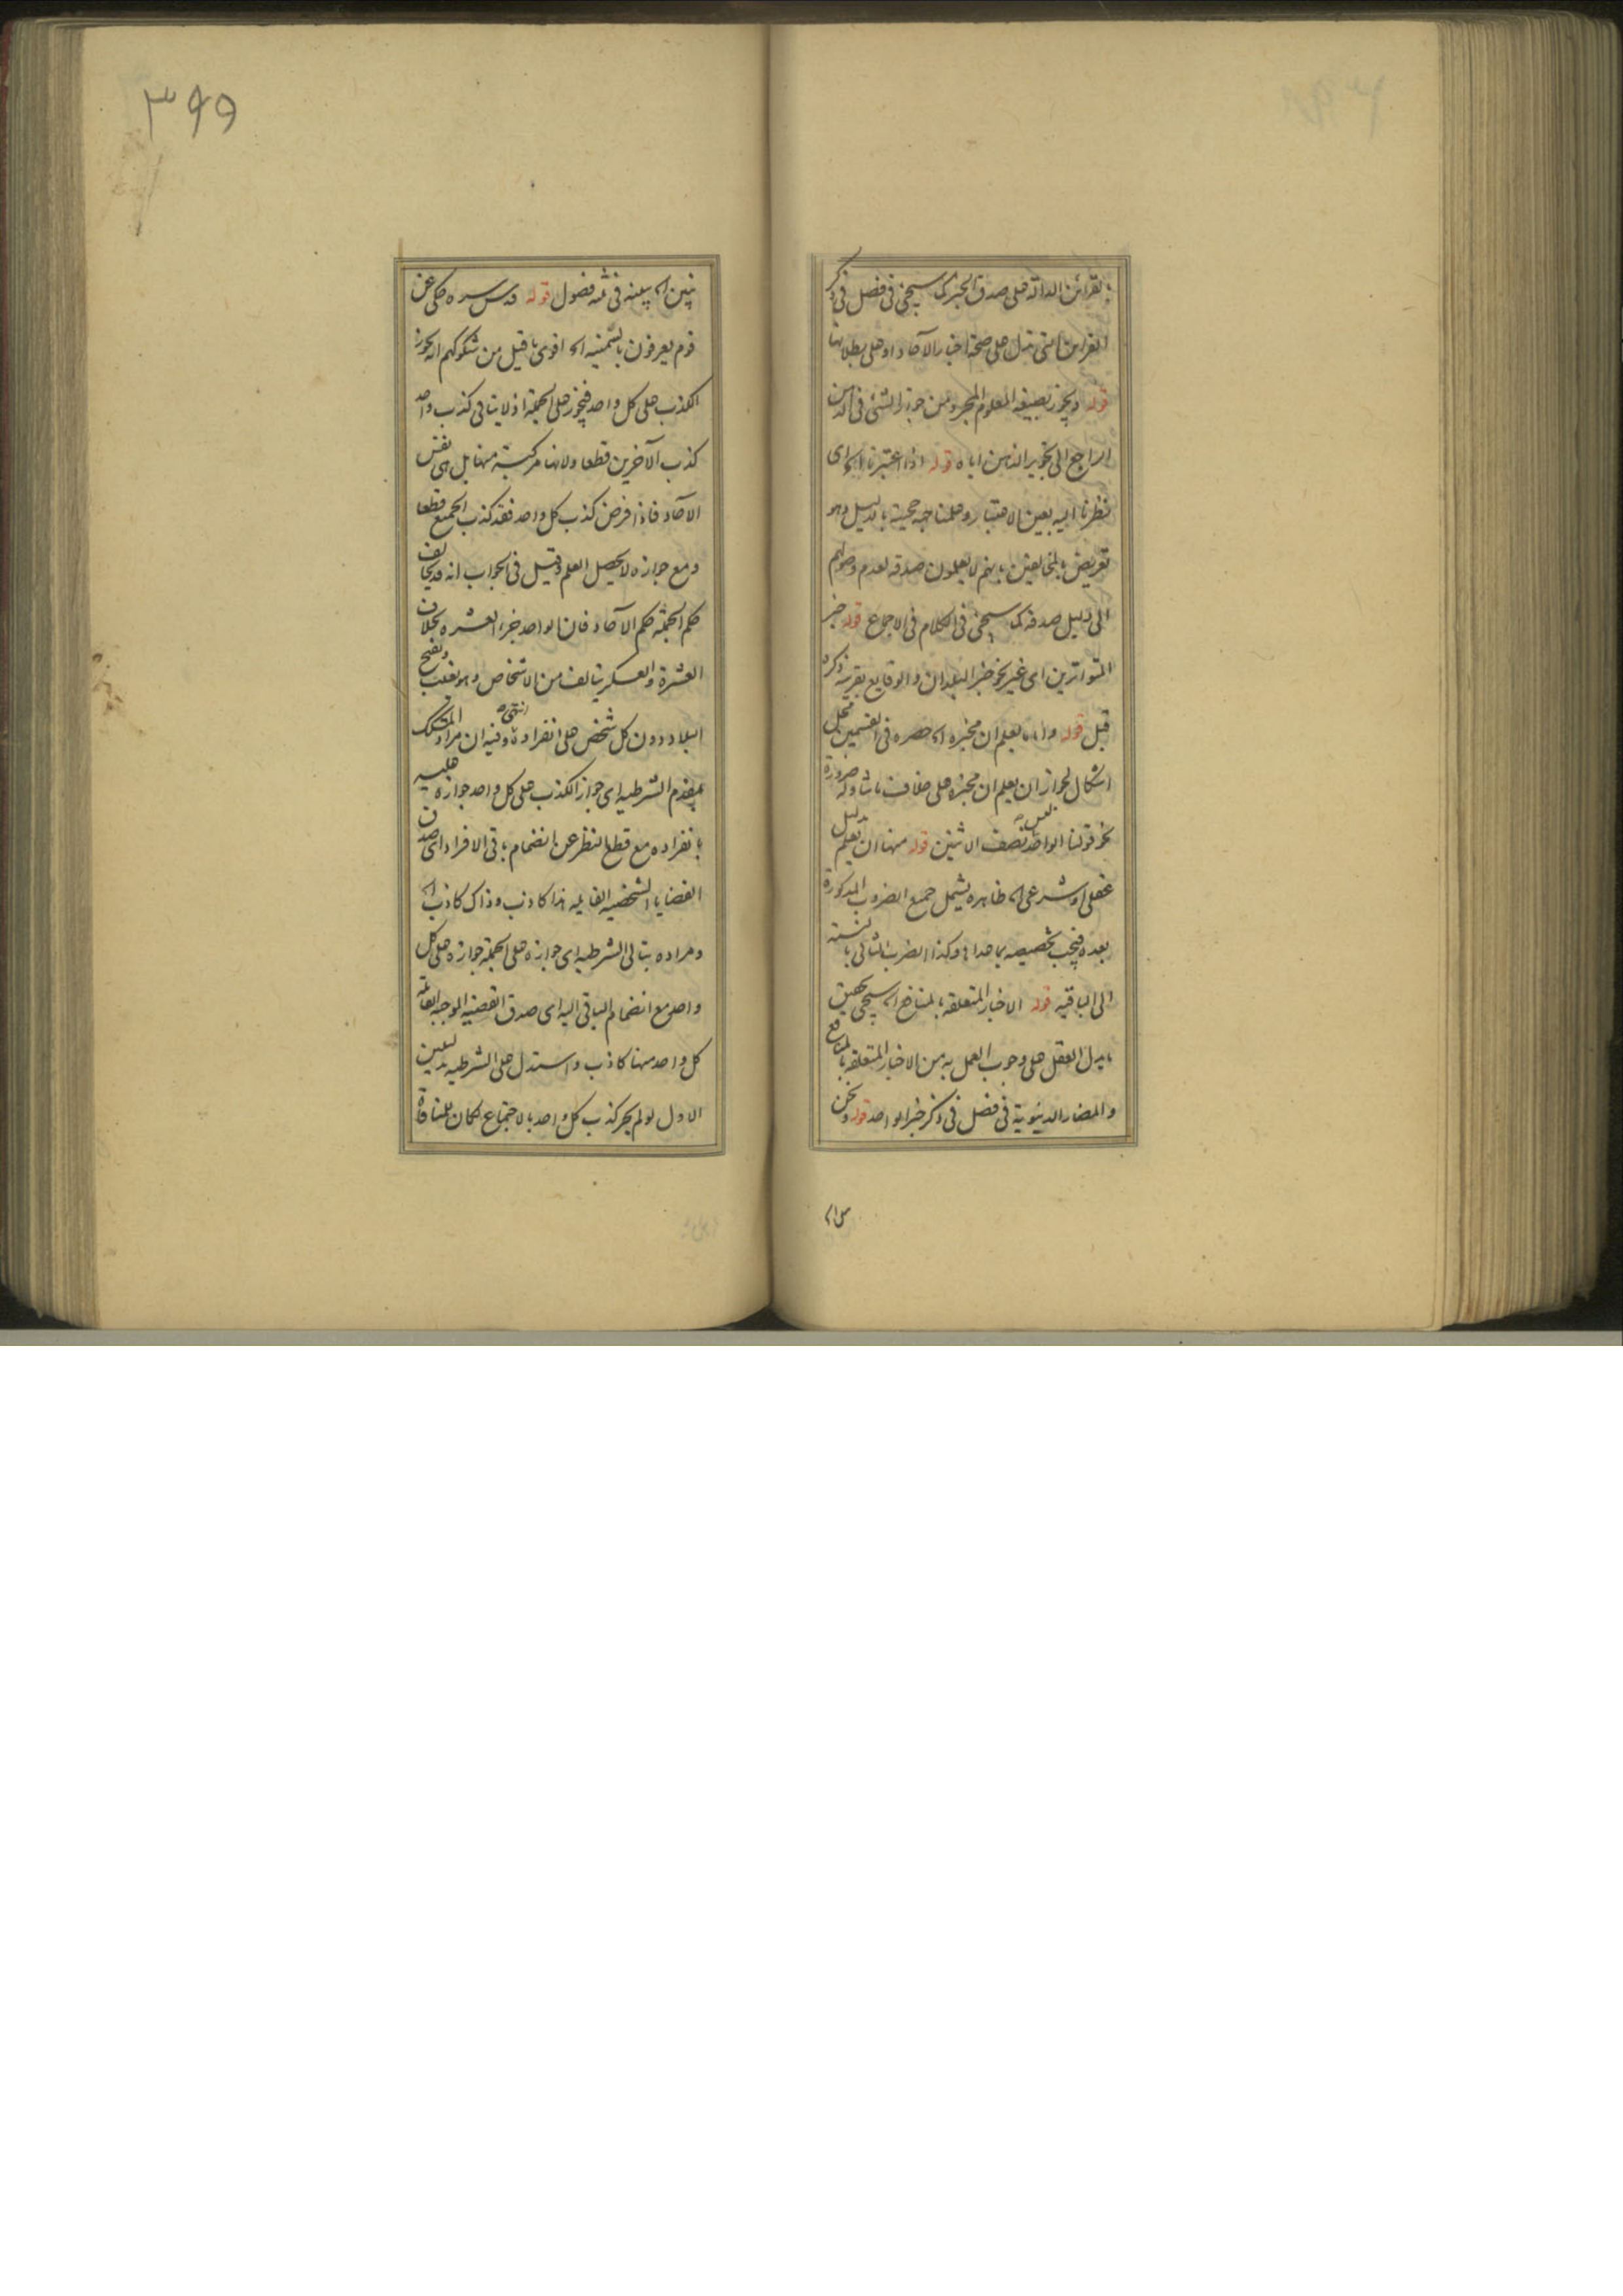 بالقرائن الدالة على صدق الخبر كما سيجئ في فصل في ذكر
القراين التى تدل على صحة اخبار الآحاد او على بطلانها
قوله ويجوز بصيغة المعلوم المجرد من جواز الشئ في الذهن
الراجع الى تجويز الذهن اياه قوله اذا اعتبرنا الخ اى
نظرنا اليه بعين الاعتبار وعلمنا جهة حجيته بالدليل وهو
تعريض بالمخالفين بانهم لا يعلمون صدقه لعدم وصولهم
الى دليل صدقه كما سيجئ في الكلام في الاجماع قوله خبر
المتواترين اى غير نحو خبر البلدان والوقايع بقرينة ذكره
قبل قوله واما ما يعلم ان مخبره الخ حصره في القسمين محل
اشكال لجواز ان يعلم ان مخبره على خلاف ما تناوله ضرورة
نحو قولنا الواحد ليس نصف الاثنين قوله منها ان يعلم بدليل
عقلى او شرعى الخ ظاهره يشمل جميع الضروب المذكورة
بعده فيجب تخصيصه بما عداها وكذا الضرب الثانى بالنسبة
الى الباقية قوله الاخبار المتعلقة بالمنافع الخ سيجئ تحقيق
ما يدل العقل على وجوب العمل به من الاخبار المتعلقة بالمنافع
والمضار الدينوية في فصل في ذكر خبر الواحد قوله ونحن
نبين الخ يبينه في ثمه فصول قوله قدس سره حكى عن
قوم يعرفون بالسمنية الخ اقوى ما قيل من شكوكهم انه يجوز
الكذب على كل واحد فيجوز على الجملة اذ لا ينافى كذب واحد
كذب الآخرين قطعا ولانها مركبة منها بل هى نفس
الآحاد فاذا فرض كذب كل واحد فقد كذب الجميع قطعا
ومع جوازه لا يحصل العلم وقيل في الجواب انه قد يخالف
حكم الجملة حكم الآحاد فان الواحد جزء العشرة بخلاف
العشرة والعسكر يتالف من الاشخاص وهو يغلب ويفتح
البلاد دون كل شخص على انفراده انتهى وفيه ان مراد المشكك
بمقدم الشرطية اى جواز الكذب على كل واحد جوازه عليه
بانفراده مع قطع النظر عن انضمام باقى الافراد اى صدق
القضايا الشخصية القايلة هذا كاذب وذاك كاذب الخ
ومراده بتالى الشرطية اى جوازه على الجملة جوازه على كل
واحد مع انضمام الباقى اليه اى صدق القضية الموجبة القائلة
كل واحد منها كاذب واستدل على الشرطية بدليلين
الاول لو لم يجز كذب كل واحد بالاجتماع لكان للمنافاة
٣٩٩